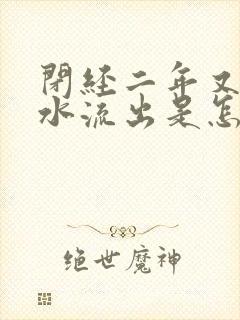 閉經二年又
水流出是怎
绝世魔神